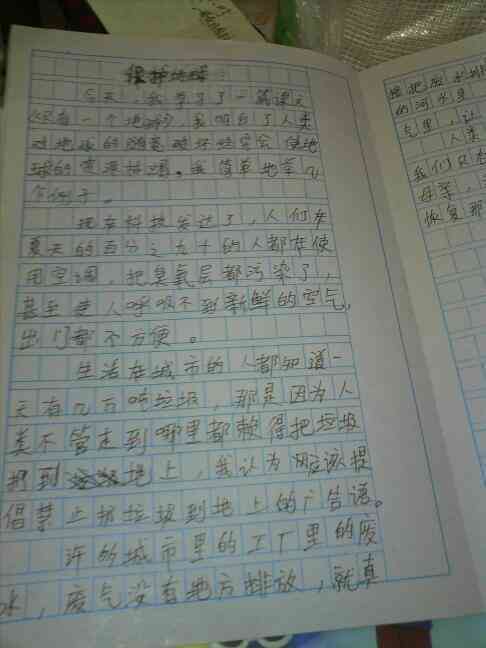 保护地球
今天，我学习了一篇课文
《只有一个地球》，我明白了人类
对地球的随意破坏
球的资源枯竭。我简单地举几
个例子。
现在科技发达了，人们在
夏天的百分之九十的人都在使
用空调，把臭氧层都污染了，
甚至使人呼吸不到新鲜的空气，
出门都不方便。
生活在城市的人都知道一
天有几万吨垃圾，那是因为人
类不管走到哪里都赖得把垃圾
扔到地上，我认为应该提
倡禁止扔垃圾到地上的广告语。
许多城市里的工厂里的废
水，废气没有地方排放，就真
接把废水排
的河水里
气里，让
人类
我们只有
母亲，
恢复那